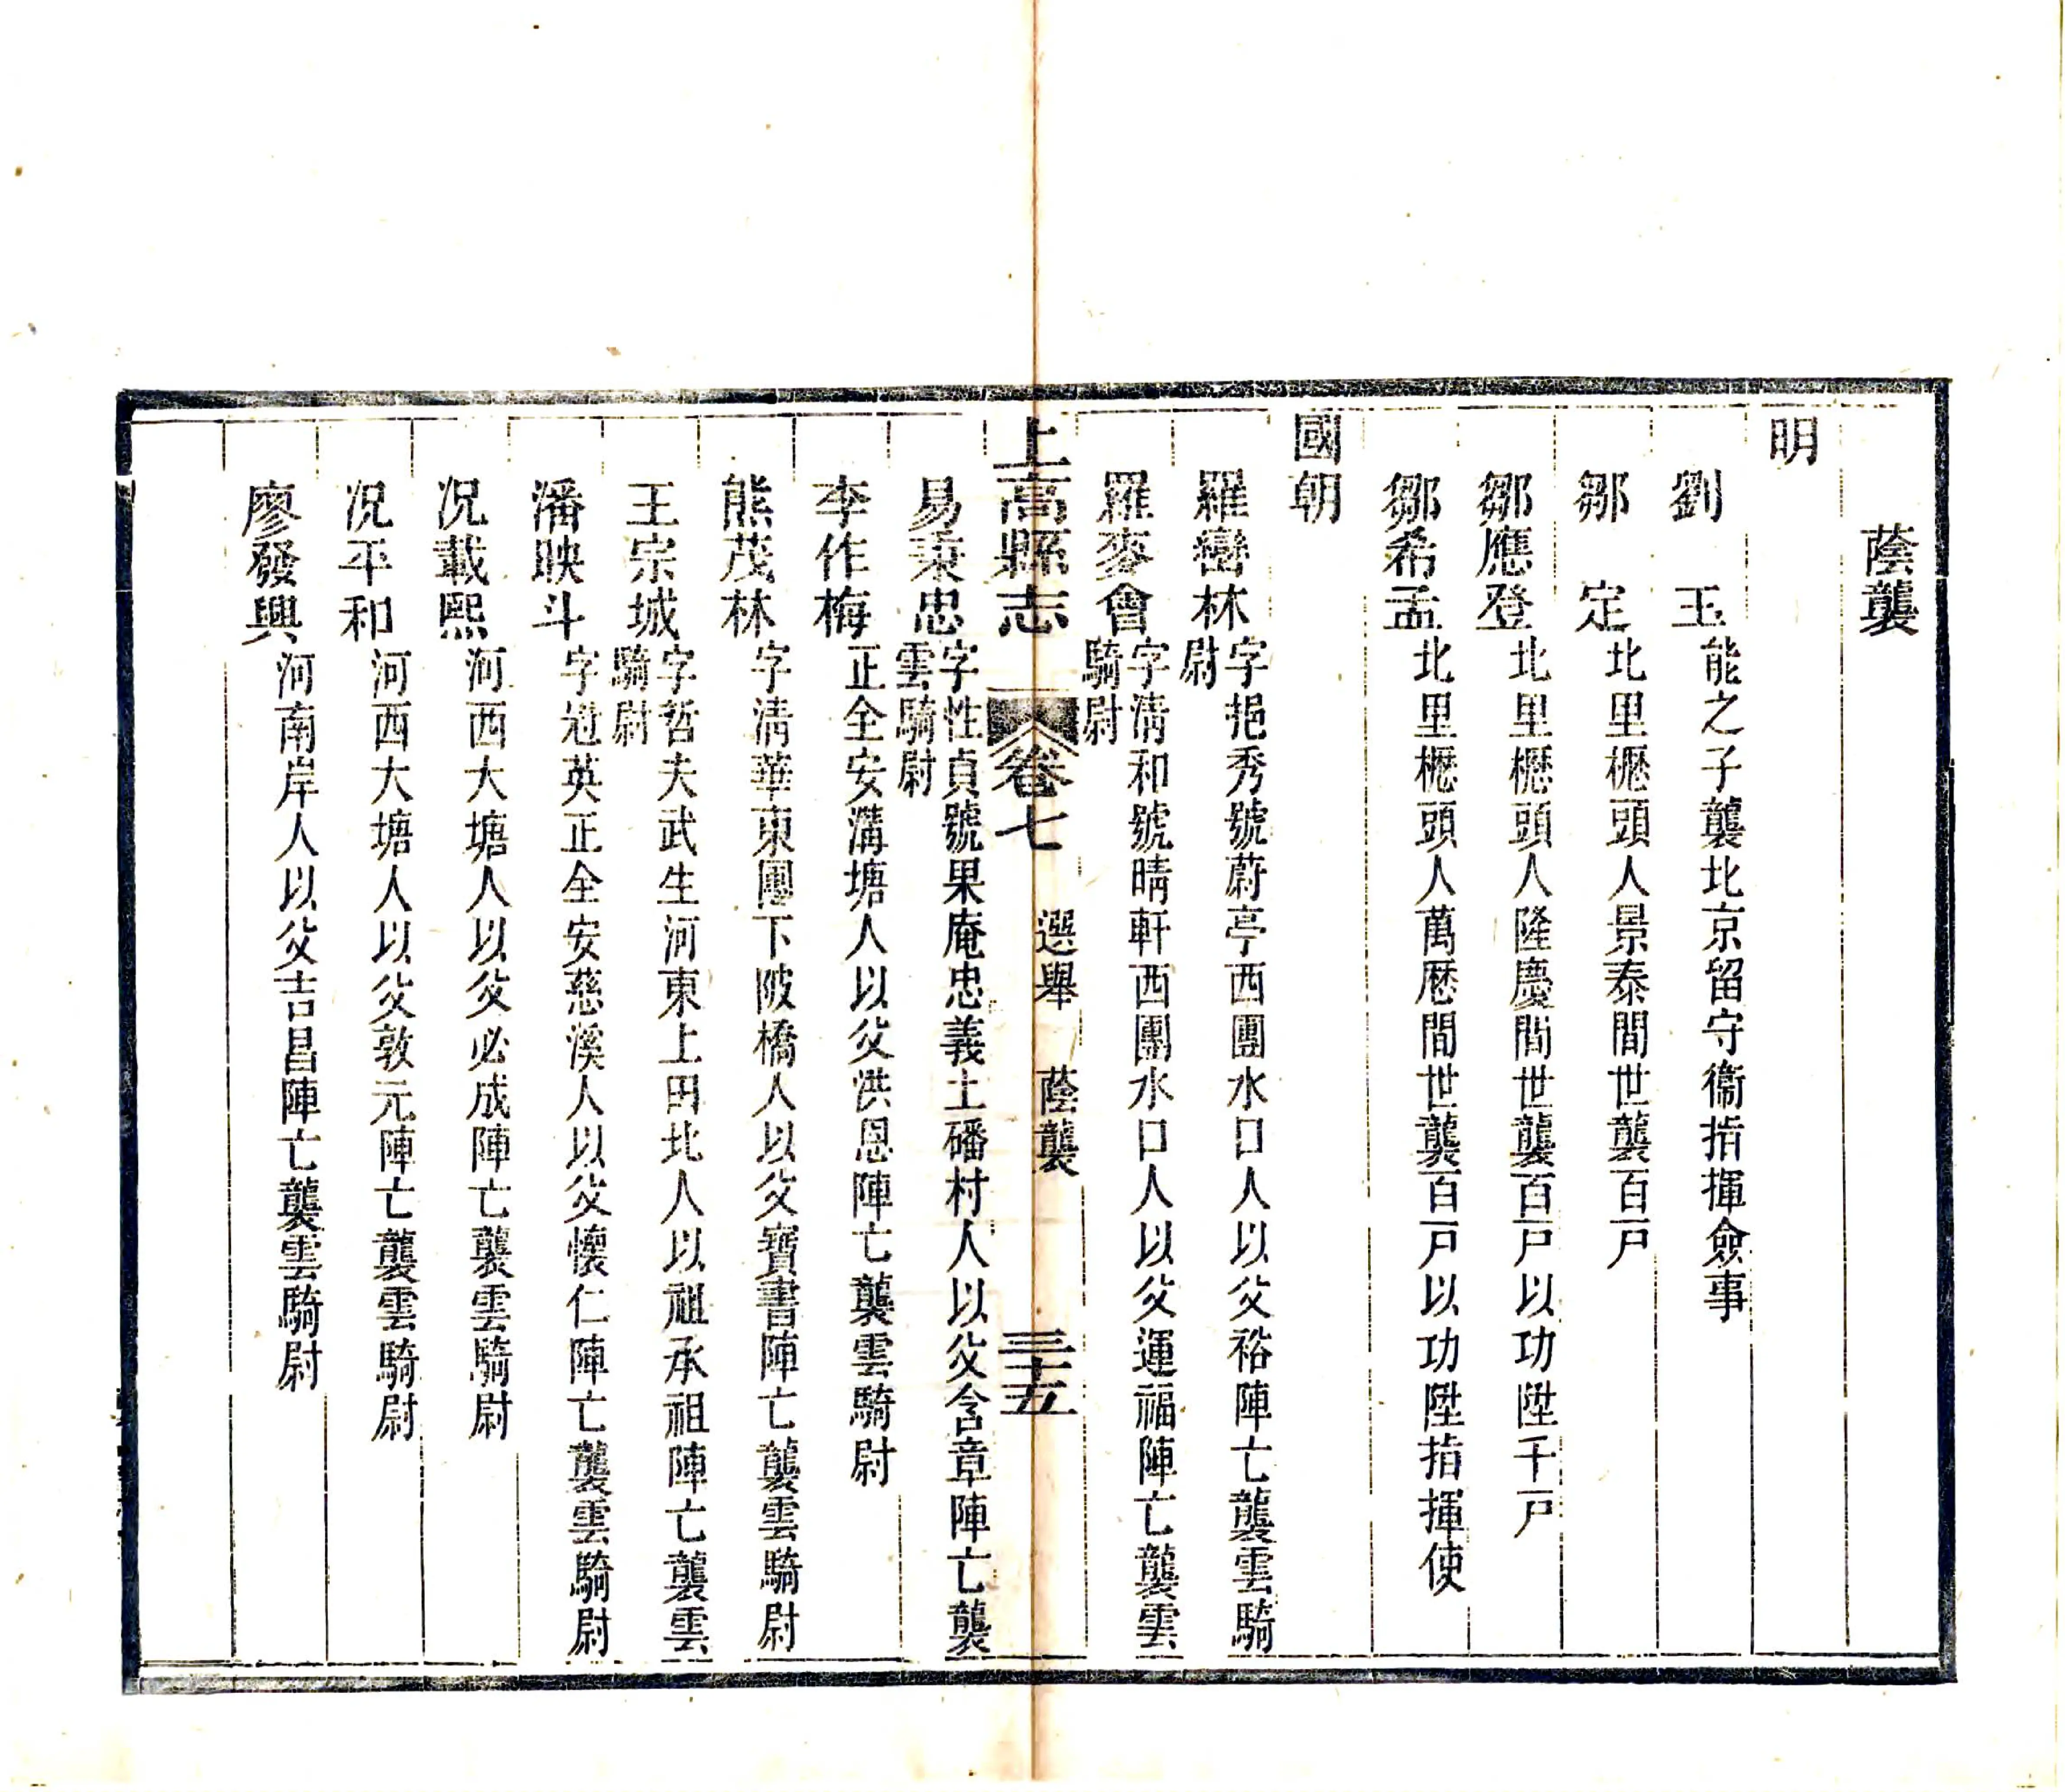 蔭襲
明
劉　玉　能之子襲北京留守衞指揮僉事
鄒　定　北里櫪頭人景泰間世襲百戸
鄒應登　北里櫪頭人隆慶間世襲百戸以功陞千戸
鄒希孟　北里櫪頭人萬厯間世襲百戸以功陞指揮使
國朝
羅巒林　字挹秀號蔚亭西團水口人以父裕陣亡襲雲騎
尉
羅麥會　字淸和號晴軒西團水口人以父運福陣亡襲雲
騎尉
上高縣志　卷七　選舉　蔭襲　三十五
易秉忠　字性貞號果庵忠義土磻村人以父含章陣亡襲
雲騎尉
李作梅　正全安溝塘人以父洪恩陣亡襲雲騎尉
熊茂林　字淸華東團下陂橋人以父寶書陣亡襲雲騎尉
王宗城　字哲夫武生河東上田北人以祖承祖陣亡襲雲
騎尉
潘映斗　字英正全安慈溪人以父懷仁陣亡襲雲騎尉
况載熙　河西大塘人以父必成陣亡襲雲騎尉
况平和　河西大塘人以父敦元陣亡襲雲騎尉
廖發興　河南岸人以父吉昌陣亡襲雲騎尉